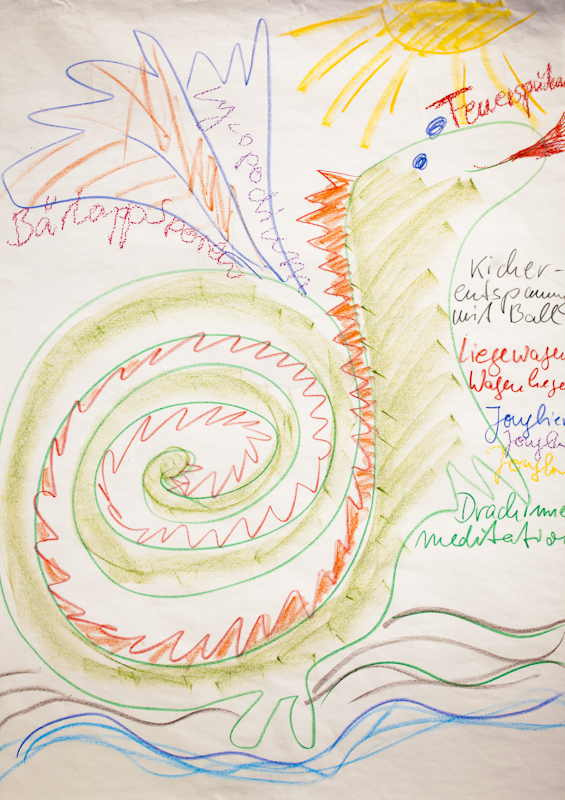 Feuerspucken
Lycopodium
Bärlappsporen
Kicher-
entspannun
mit Ball
Liegewagen
Wagenliege
Jonglier
Drachinne
meditation